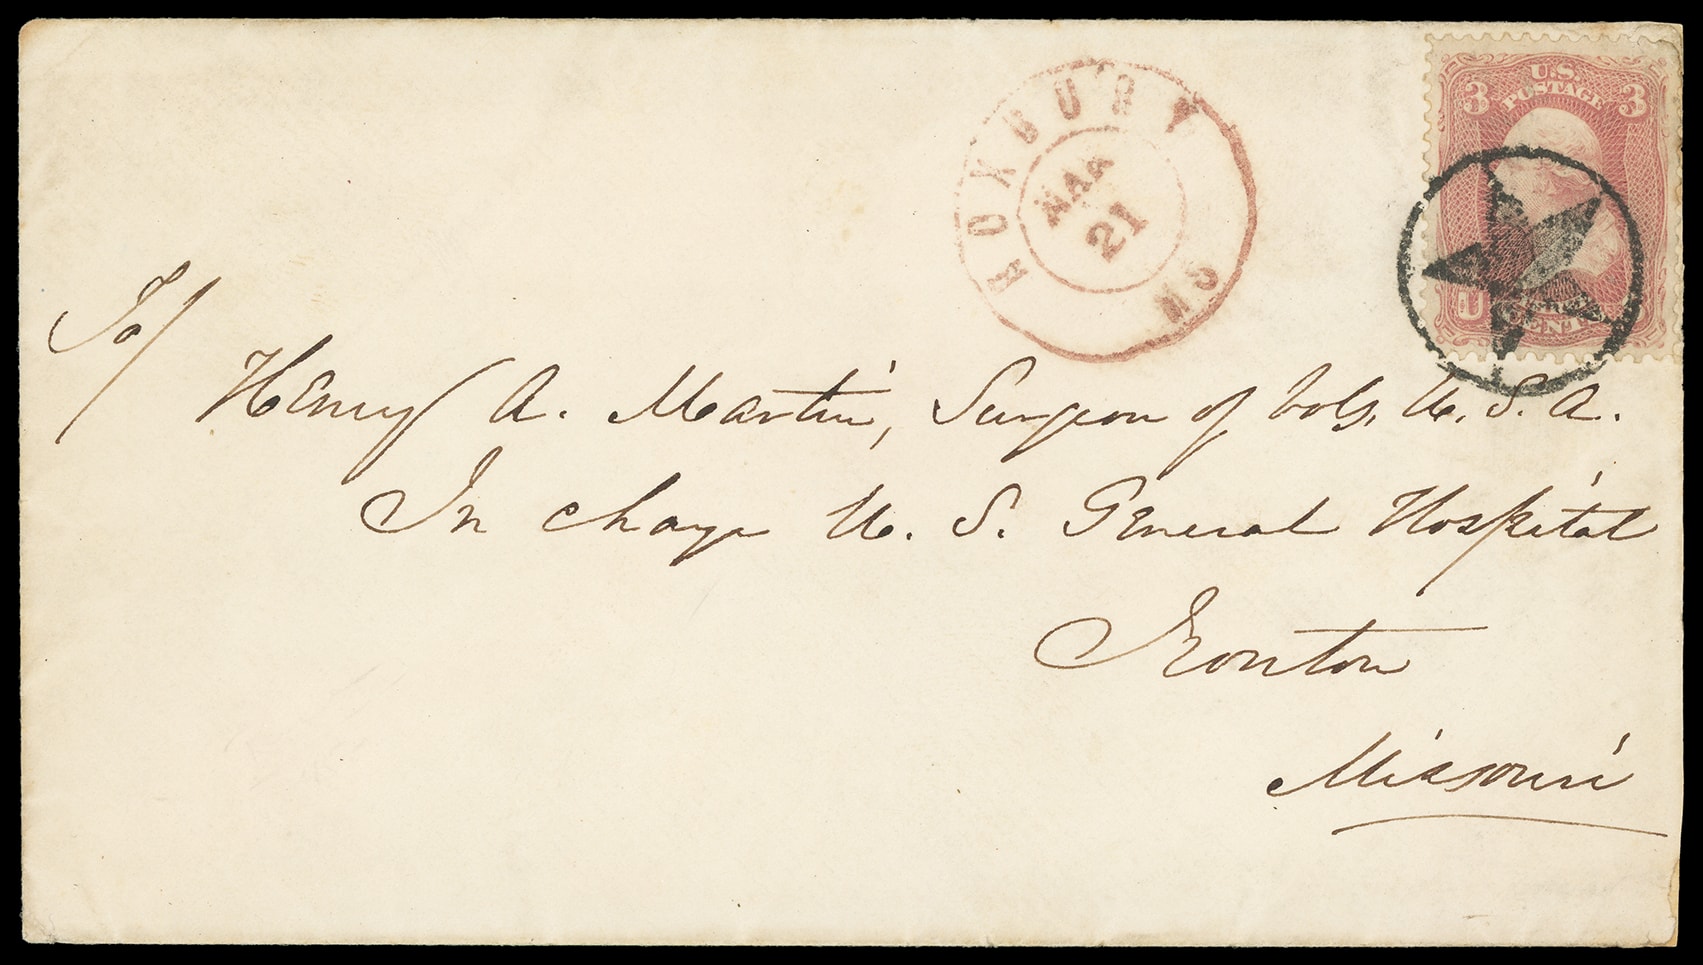 U.S.
POSTAGE
3 3
ROXBURY
MAR
21
MS
To/
Henry A. Martin, Surgeon of Vols, U. S. A.
In charge U. S. General Hospital
Ironton
Missouri